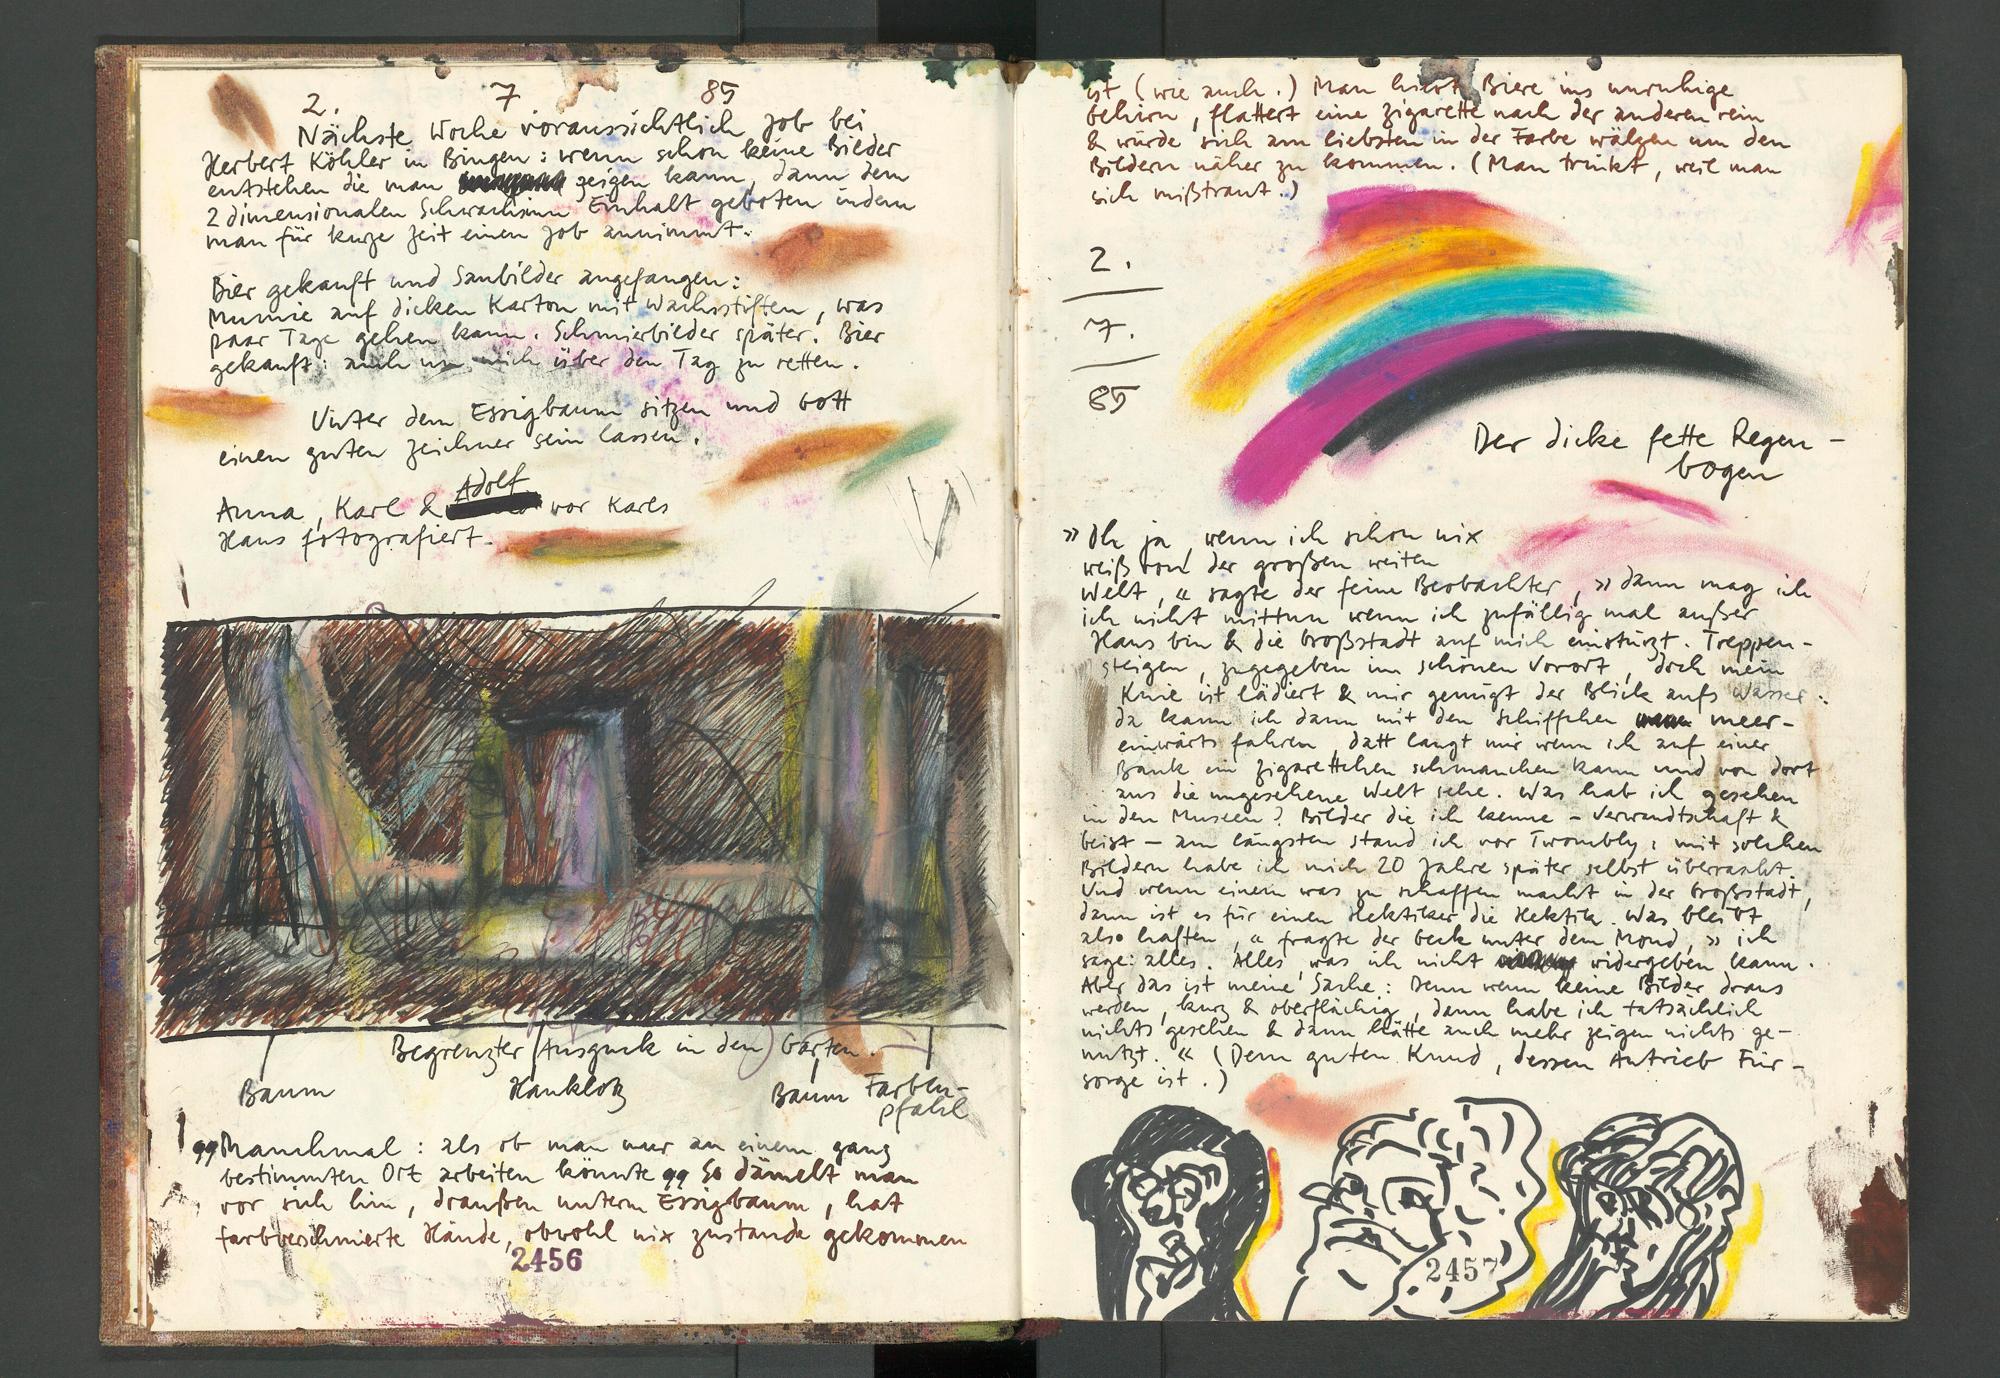 2. 7 85
Nächste Woche voraussichtlich Job bei
Herbert Köhler in Bingen: wenn schon keine Bilder
entstehen die man zeigen kann, dann dem
2dimensionalen Schwachsinn Einhalt geboten indem
man für kurze Zeit einen Job annimmt.
Bier gekauft und Saubilder angefangen:
Mumie auf dicken Karton mit Wachsstiften, was
paar Tage gehen kann. Schmierbilder später. Bier
gekauft: auch um mich über den Tag zu retten.
Unter dem Essigbaum sitzen und Gott
einen guten Zeichner sein lassen.
Adolf
Anna, Karl & vor Karls
Haus fotografiert.
Begrenzter Ausguck in den Garten.
Baum Hauklotz Baum Farben-
pfahl
"Manchmal: als ob man nur an einem ganz
bestimmten Ort arbeiten könnte" So dämelt man
vor sich hin, draußen unterm Essigbaum, hat
farbverschmierte Hände, obwohl nix zustande gekommen
2456
ist (wie auch.) Man Biere ins unruhige
Gehirn, flattert eine Zigarette nach der anderen rein
& würde sich am liebsten in der Farbe wälzen um den
Bildern näher zu kommen. (Man trinkt, weil man
sich mißtraut.)
2.
7.
85
Der dicke fette Regen-
bogen
»Oh ja, wenn ich schon nix
weiß von der großen weiten
Welt,« sagte der feine Beobachter, »dann mag ich
ich nicht mittun wenn ich zufällig mal außer
Haus bin & die Großstadt auf mich einstürzt. Treppen-
steigen, zugegeben im schönen Vorort, doch mein
Knie ist lädiert & mir genügt der Blick aufs Wasser:
da kann ich dann mit den Schiffchen meer-
einwärts fahren, datt langt mir wenn ich auf einer
Bank ein Zigarettchen schmauchen kann und von dort
aus die ungesehene Welt sehe. Was hab ich gesehen
in den Museen? Bilder die ich kenne – Verwandtschaft &
Geist – am längsten stand ich vor Twombly: mit solchen
Bildern habe ich mich 20 Jahre später selbst überrascht.
Und wenn einem was zu schaffen macht in der Großstadt,
dann ist es für einen Hektiker die Hektik. Was bleibt
also haften,« fragte der Geck unter dem Mond, »ich
sage: alles. Alles, was ich nicht widergeben kann.
Aber das ist meine Sache: Denn wenn keine Bilder draus
werden, kurz & oberflächig, dann habe ich tatsächlich
nichts gesehen & dann hätte auch mehr zeigen nichts ge-
nutzt.« (Dem guten Knud, dessen Antrieb Für-
sorge ist.)
2457